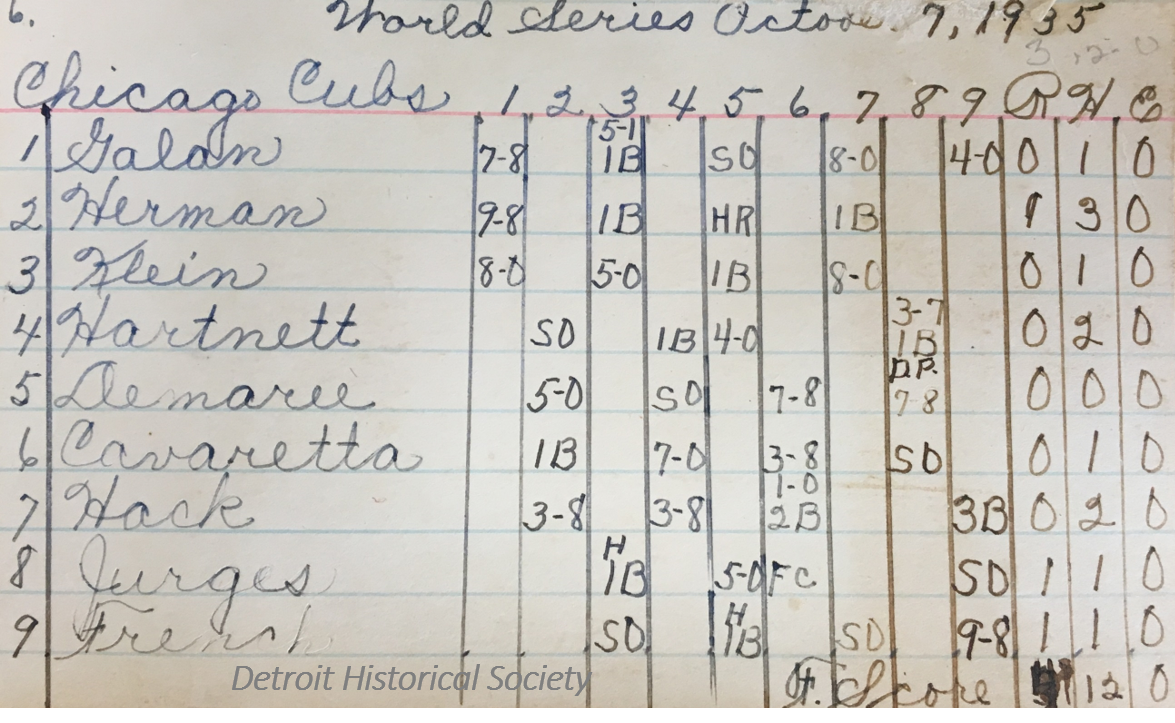 6. World Series October 7, 1935
3 12 0
Chicago Cubs 1 2 3 4 5 6 7 8 9 R H E
1 Galan 7-8 5-1 1B SO 8-0 4-0 0 1 0
2 Herman 9-8 1B HR 1B 1 3 0
3 Klein 8-0 5-0 1B 8-0 0 1 0
4 Hartnett SO 1B 4-0 3-7 1B 0 2 0
5 Demaree 5-0 SO 7-8 D.P. 7-8 0 0 0
6 Cavaretta 1B 7-0 3-8 SO 0 1 0
7 Hack 3-8 3-8 1-0 2B 3B 0 2 0
8 Jurges H 1B 5-0 FC SO 1 1 0
9 French SO H 1B SO 9-8 1 1 0
F. Score 12 0
Detroit Historical Society